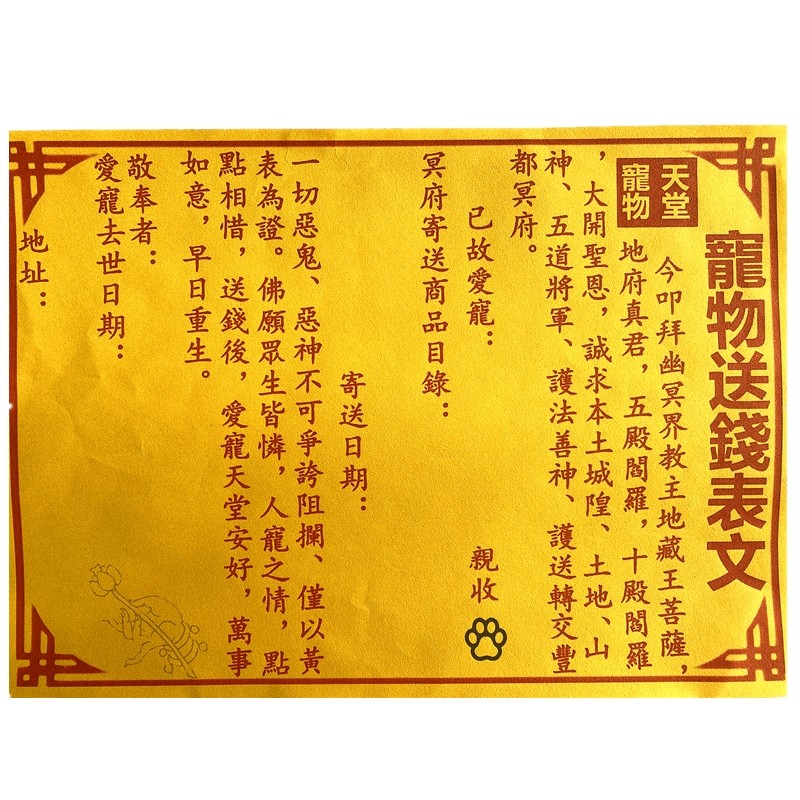 寵物送錢表文
天堂
寵物
今叩拜幽冥界教主地藏王菩薩，
地府真君，五殿閻羅，十殿閻羅
，大開聖恩，誠求本土城隍、土地、山
神、五道將軍、護法善神、護送轉交豐
都冥府。
已故愛寵： 親收
冥府寄送商品目錄：
寄送日期：
一切惡鬼、惡神不可爭誇阻攔、僅以黃
表為證。佛願眾生皆憐，人寵之情，點
點相惜，送錢後，愛寵天堂安好，萬事
如意，早日重生。
敬奉者：
愛寵去世日期：
地址：